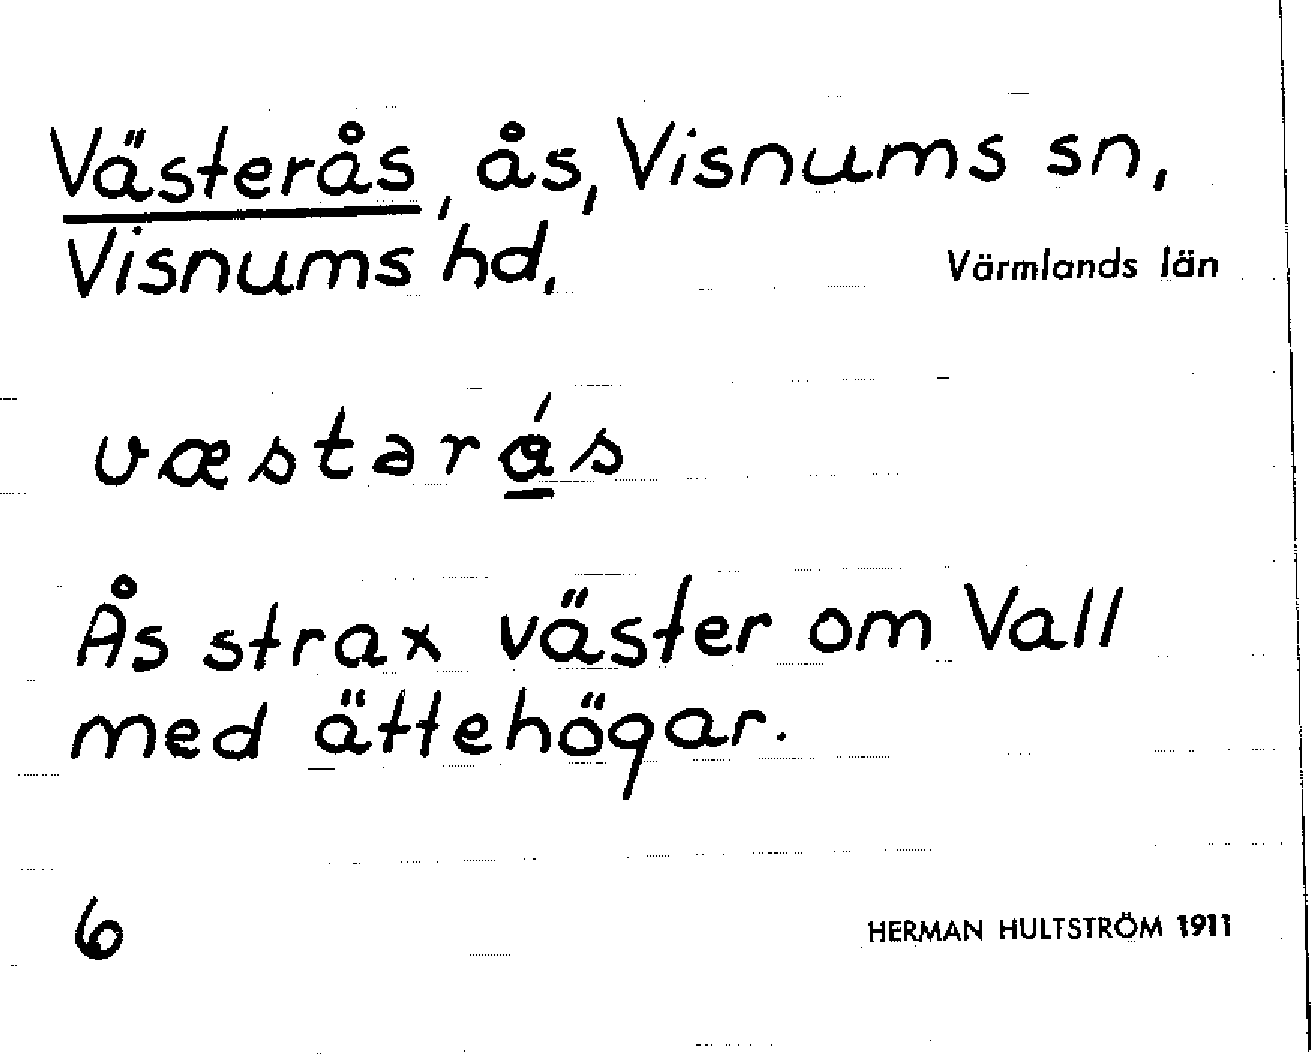 Västerås, ås, Visnums sn,
Visnums hd.
Värmlands län
væstarás
Ås strax väster om Vall
med ättehögar.
6
HERMAN HULTSTRÖM 1911